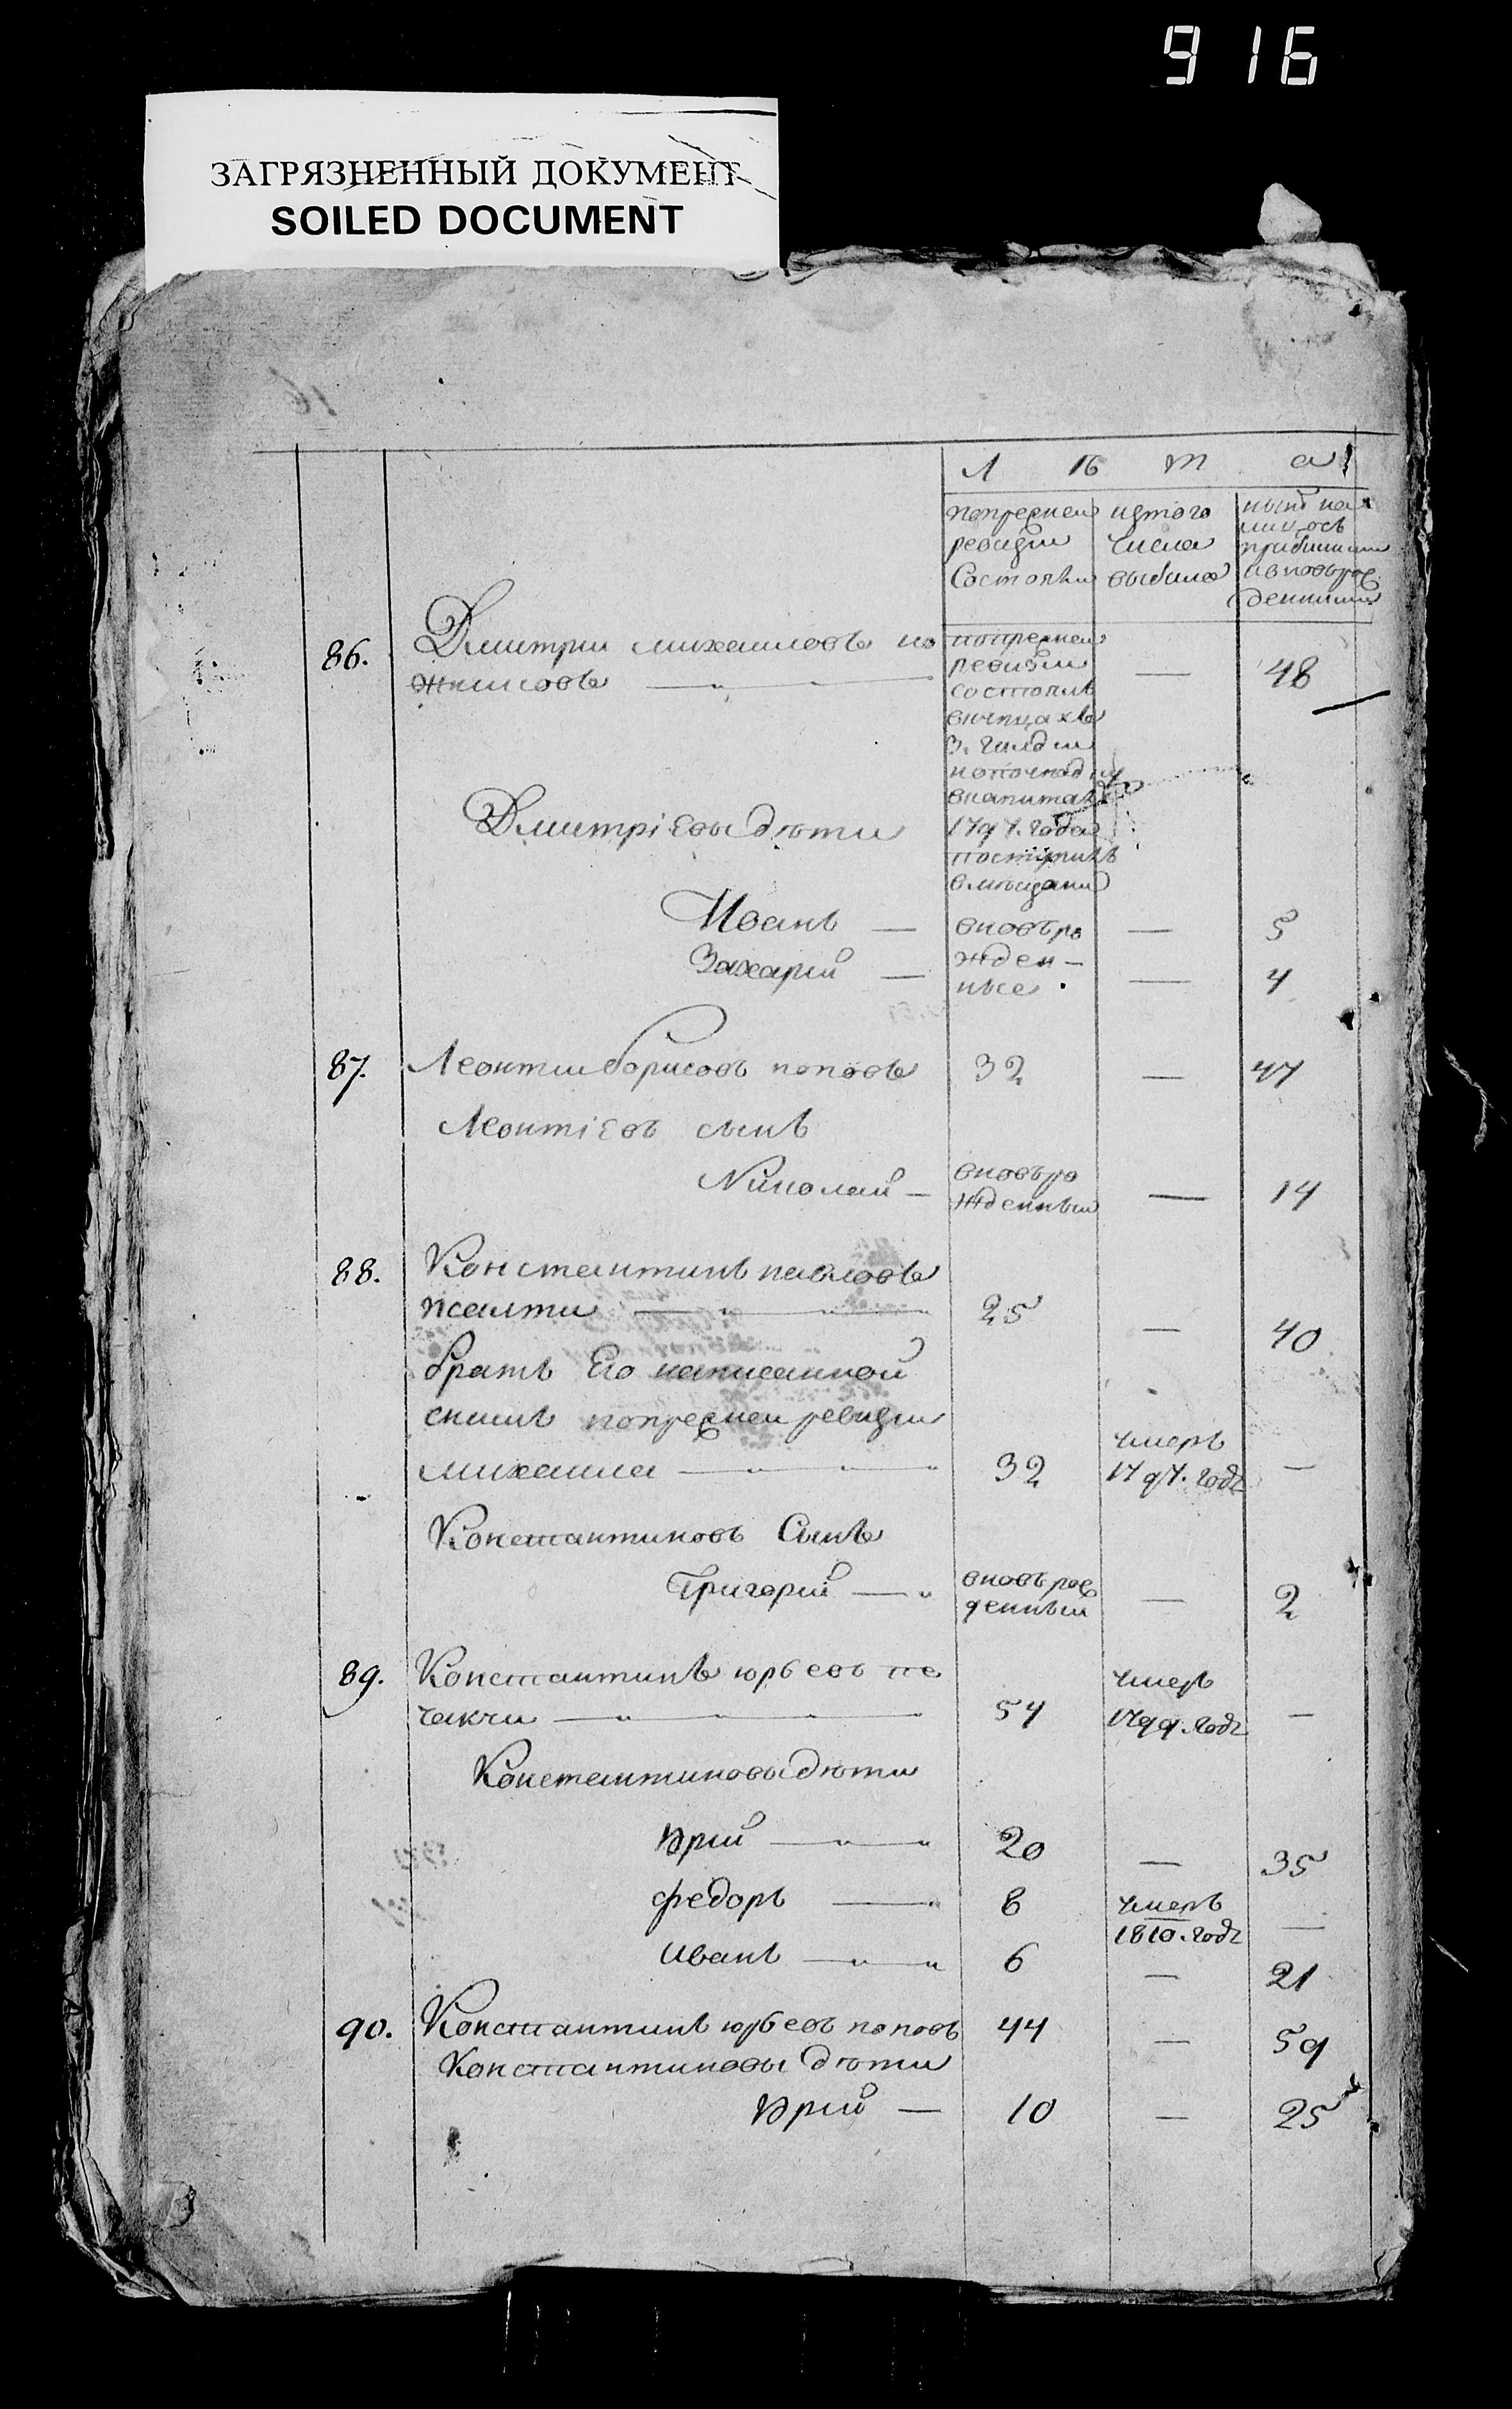 916
ЗАГРЯЗНЕННЫЙ ДОКУМЕНТ
SOILED DOCUMENT
Л Ѣ т а
попрежнеи ревизіи состояли
изтого числа выбыло
нынѣ на лицо съ прибылыми ивновьрожденными
86. Дмитри михаиловъ но
жниковъ — попрежнеи ревизіи состоялъ вкупцахъ 3. гилдіи — 48
1797. года поступилъ вмѣщани
Дмитріевы дѣти
Иванъ — вновьро — 5
Захарій — жден-ные — 4
87. Леонтии борисовъ поповъ 32 — 47
Леонтіевъ сынъ
Николай — вновьро жденныи — 14
88. Константинъ павловъ
жалти — 25 — 40
братъ Его написанной
снимъ попрежнеи ревизіи
михаила — 32 умеръ 1797. годѣ —
Константиновъ Сынъ
Григорій — вновьрож денныи — 2
89. Константинъ юрьевъ пе
чакчи — 54 умеръ 1799. годѣ —
Константиновы дѣти
Юрій — 20 — 35
федоръ — 8 умеръ 1810. годѣ —
иванъ — 6 — 21
90. Константинъ юрьевъ поповъ 44 — 59
Константиновы дѣти
Юрій — 10 — 25